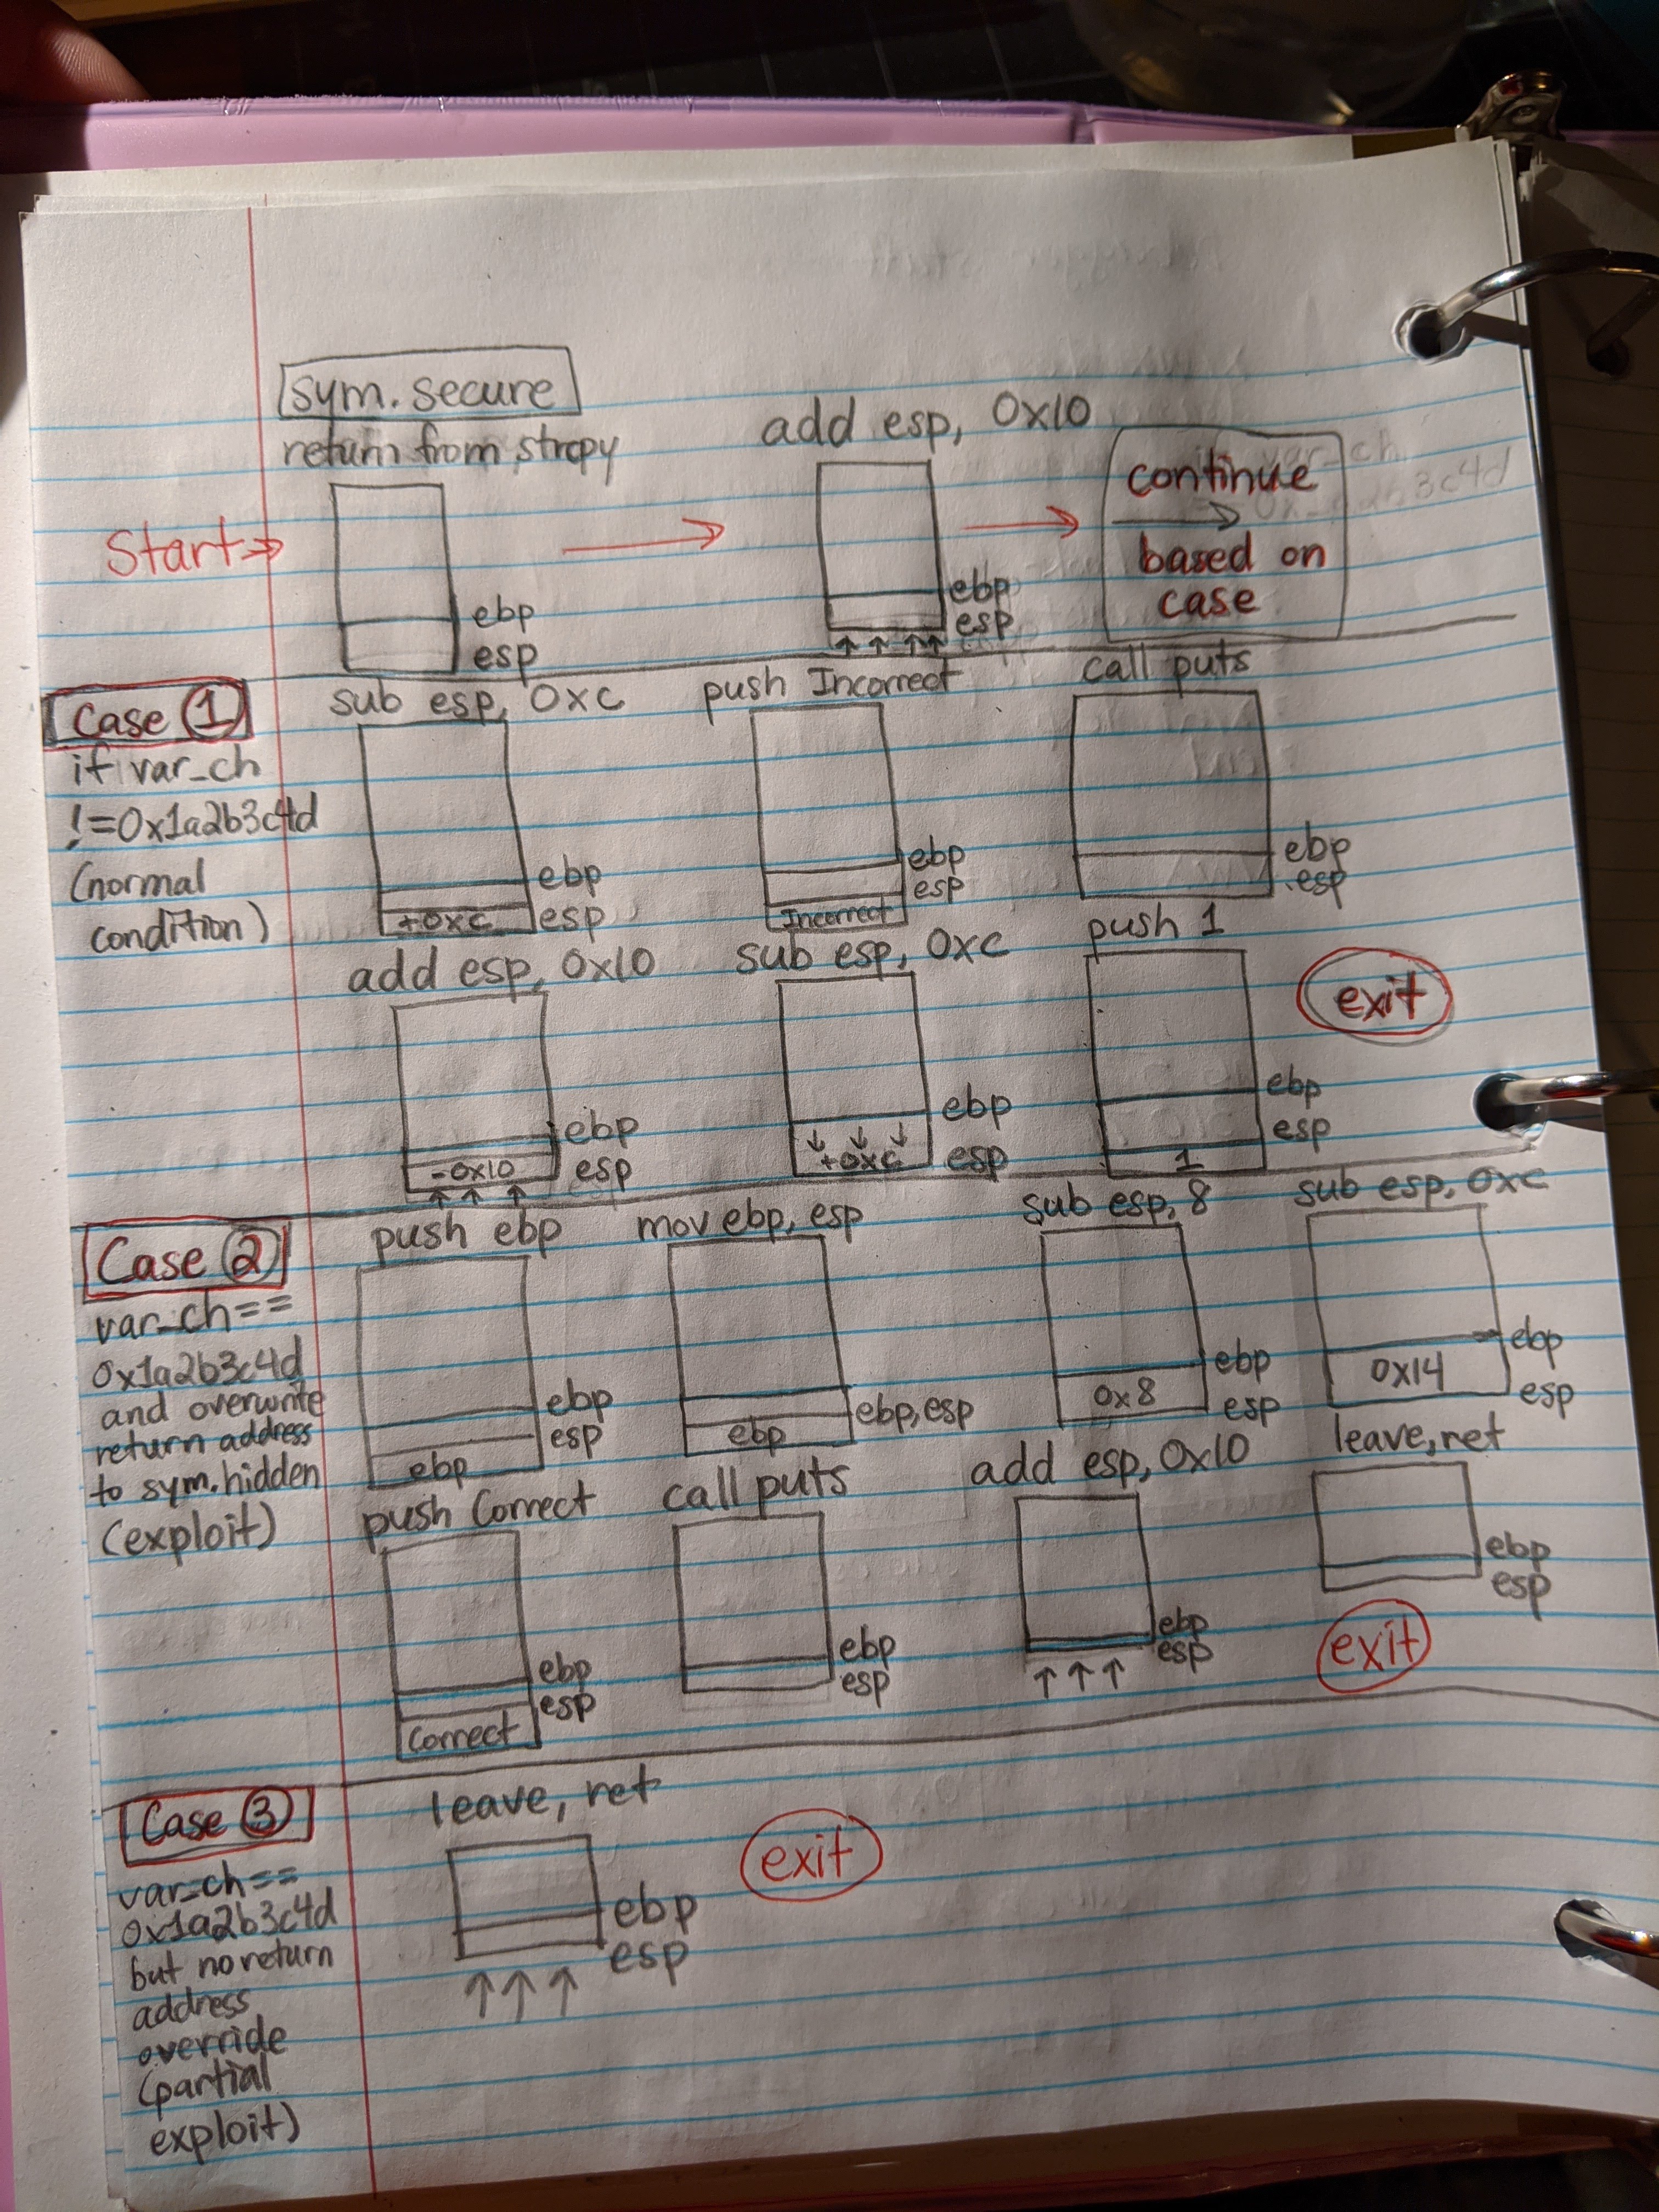 sym. secure
return from strcpy
add esp, 0x10
Start
ebp
esp
ebp
esp
continue
based on
case
Case 1
if var_ch
!=0x1a2b3c4d
(normal
condition)
sub esp, 0xc
ebp
+0xc esp
push Incorrect
ebp
esp
Incorrect
call puts
ebp
esp
add esp, 0x10
ebp
-0x10 esp
sub esp, 0xc
ebp
+0xc esp
push 1
ebp
esp
1
exit
Case 2
var_ch==
0x1a2b3c4d
and overwrite
return address
to sym.hidden
(exploit)
push ebp
ebp
esp
ebp
mov ebp, esp
ebp, esp
ebp
sub esp, 8
ebp
0x8 esp
sub esp, 0xc
ebp
0x14 esp
push Correct
ebp
esp
Correct
call puts
ebp
esp
add esp, 0x10
ebp
esp
leave, ret
ebp
esp
exit
Case 3
var_ch==
0x1a2b3c4d
but no return
address
override
(partial
exploit)
leave, ret
ebp
esp
exit